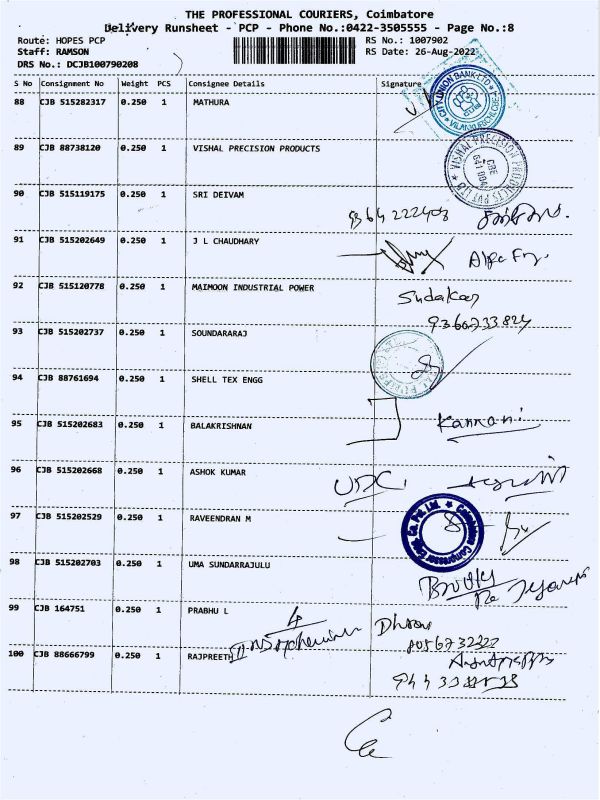 THE PROFESSIONAL COURIERS, Coimbatore
Delivery Runsheet - PCP - Phone No.:0422-3505555 - Page No.:8
Route: HOPES PCP RS No.: 1007902
Staff: RAMSON RS Date: 26-Aug-2022
DRS No.: DCJB100790208
S No Consignment No Weight PCS Consignee Details Signature
88 CJB 515282317 0.250 1 MATHURA
CITY UNION BANK LTD
89 CJB 88738120 0.250 1 VISHAL PRECISION PRODUCTS
VISHAL PRECISION PRODUCTS PVT LTD
CBE
641 004
90 CJB 515119175 0.250 1 SRI DEIVAM
91 CJB 515202649 0.250 1 J L CHAUDHARY
92 CJB 515120778 0.250 1 MAIMOON INDUSTRIAL POWER
Sudakar
9360733824
93 CJB 515202737 0.250 1 SOUNDARARAJ
94 CJB 88761694 0.250 1 SHELL TEX ENGG
95 CJB 515202683 0.250 1 BALAKRISHNAN
Kannani
96 CJB 515202668 0.250 1 ASHOK KUMAR
97 CJB 515202529 0.250 1 RAVEENDRAN M
Coimbatore Compressor Engg. Co. Pvt. Ltd.
98 CJB 515202703 0.250 1 UMA SUNDARRAJULU
99 CJB 164751 0.250 1 PRABHU L
100 CJB 88666799 0.250 1 RAJPREETH